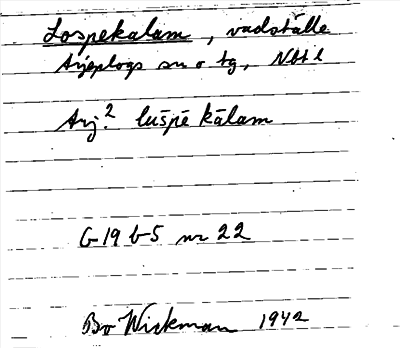 Lospekalam, vadställe
Arjeplogs sn o tg, Nbtl
Arj.² lušpē kālam
G 19 b5 nr 22
Bo Wickman 1942